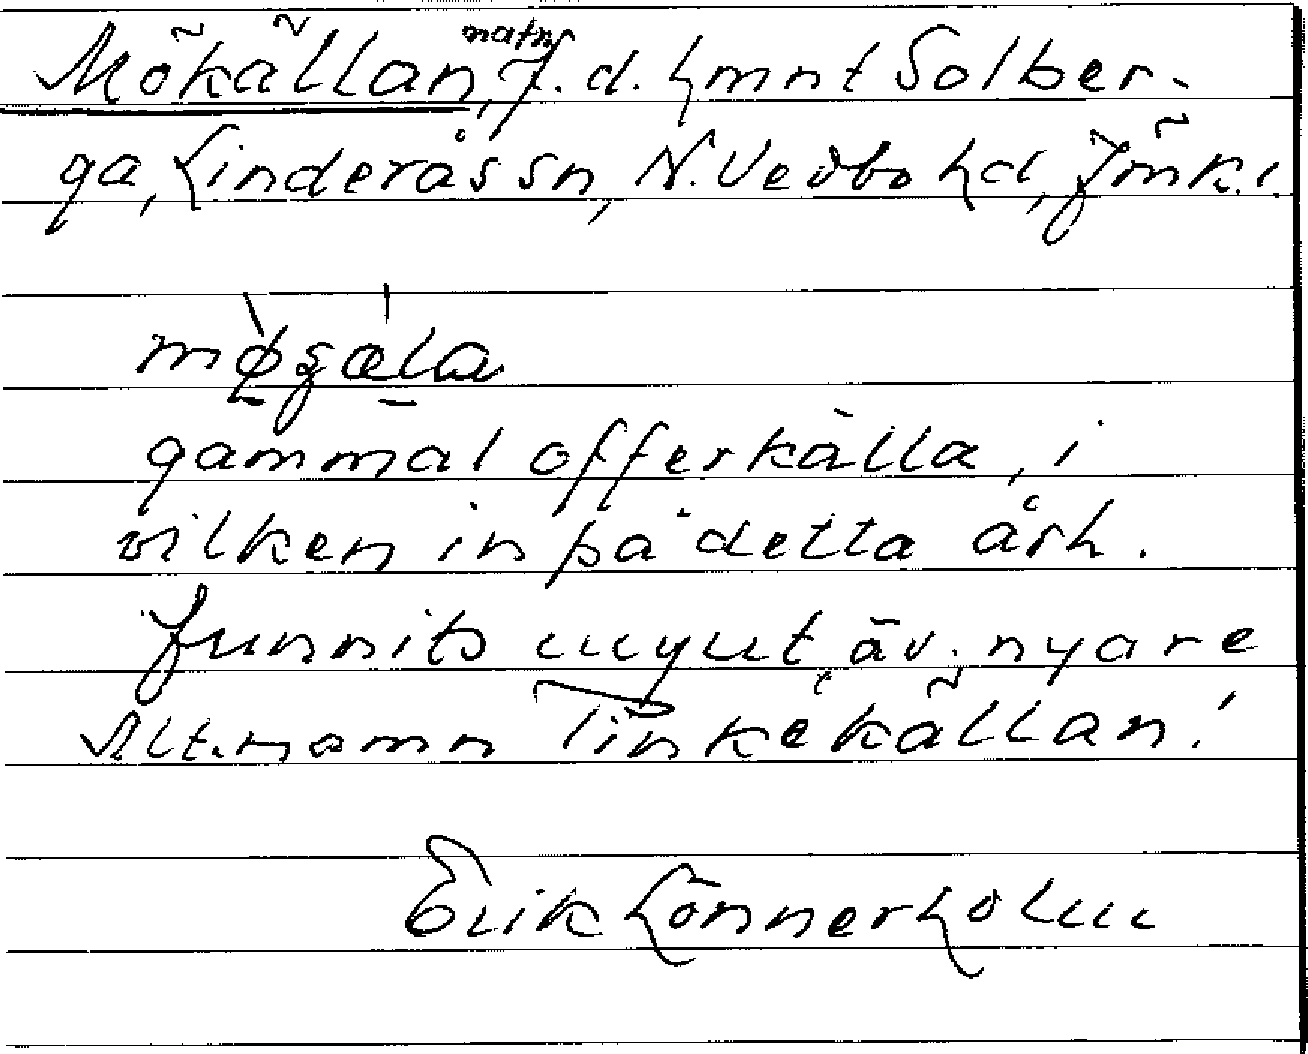 Mökällan, natn, f.d. hmnt Solber-
ga, Linderås sn, N. Vedbo hd, Jönk. l.
gammal offerkälla, i
vilken in på detta årh.
funnits mynt, äv. nyare
Alt. namn Tinkekällan!
Erik Lönnerholm